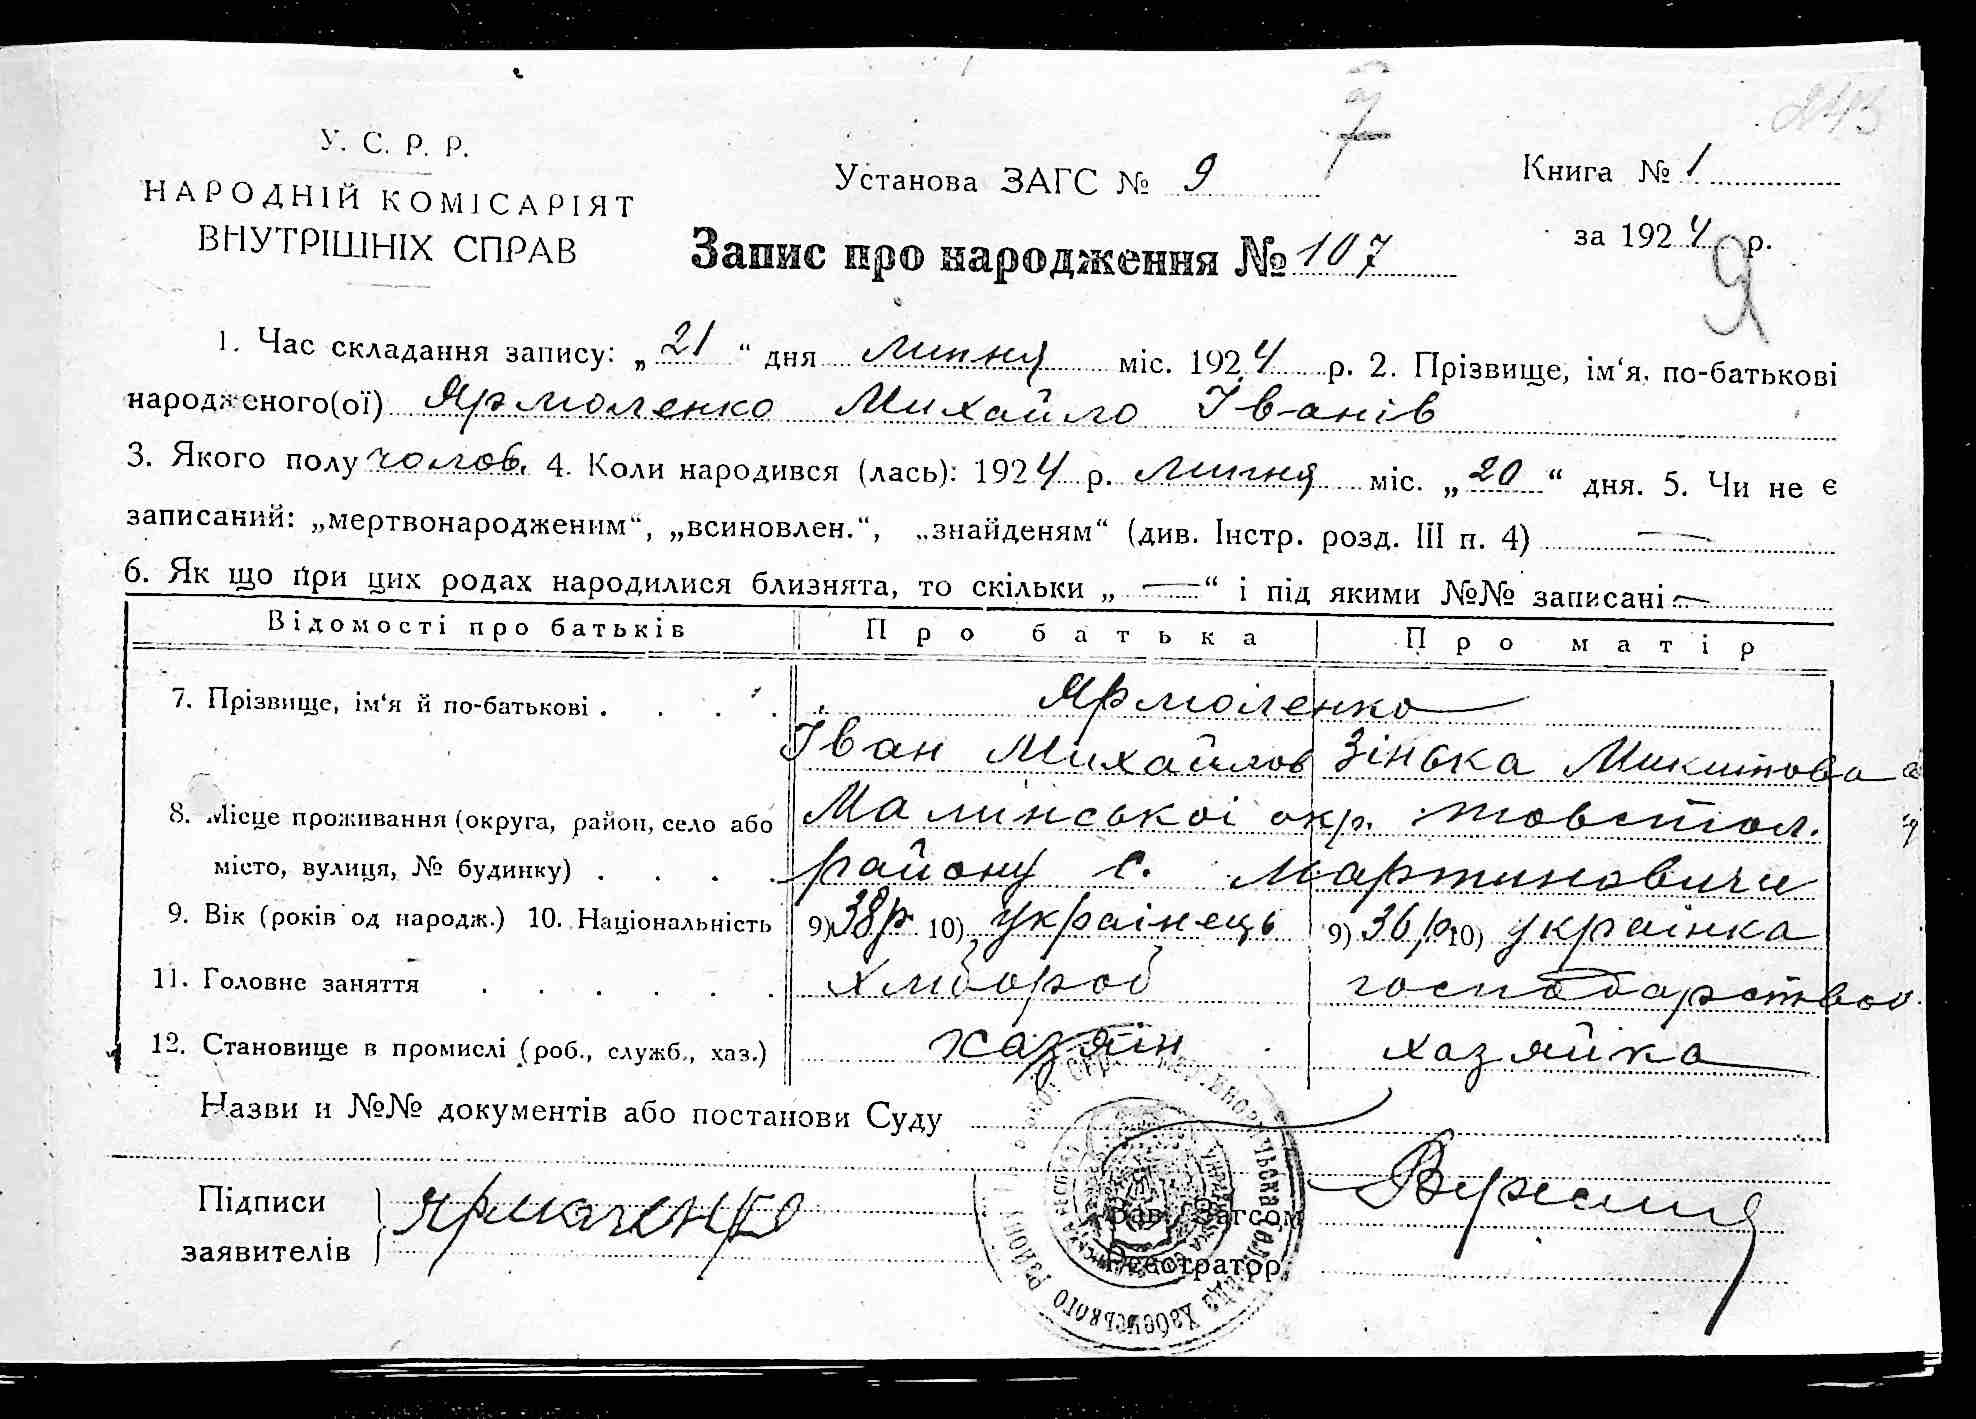 243
У. С. Р. Р.
НАРОДНІЙ КОМІСАРІЯТ
ВНУТРІШНІХ СПРАВ
Установа ЗАГС № 9
Книга № 1
за 1924 р.
Я
Запис про народження № 107
1. Час складання запису: „21“ дня липня міс. 1924 р. 2. Прізвище, ім‘я, по-батькові
народженого(ої) Ярмоленко Михайло Іванів
3. Якого полу чолов. 4. Коли народився (лась): 1924 р. липня міс. „20“ дня. 5. Чи не є
записаний: „мертвонародженим“, „всиновлен.“, „знайденям“ (див. Інстр. розд. III п. 4) —
6. Як що при цих родах народилися близнята, то скільки „—“ і під якими №№ записані —
Відомості про батьків Про батька Про матір
7. Прізвище, ім‘я й по-батькові . . . . Ярмоленко
Іван Михайлов Зінька Микитова
8. Місце проживання (округа, район, село або Малинської окр. товстол.
місто, вулиця, № будинку) . . . . району с. Мартиновичи
9. Вік (років од народж.) 10. Національність 9) 38р 10) українець 9) 36р. 10) українка
11. Головне заняття . . . . . . Хлібороб господарство
12. Становище в промислі (роб., служб., хаз.) хазяїн хазяйка
Назви и №№ документів або постанови Суду
Підписи
заявителів
Ярмоленко
Зав. Загсом
Реєстратор